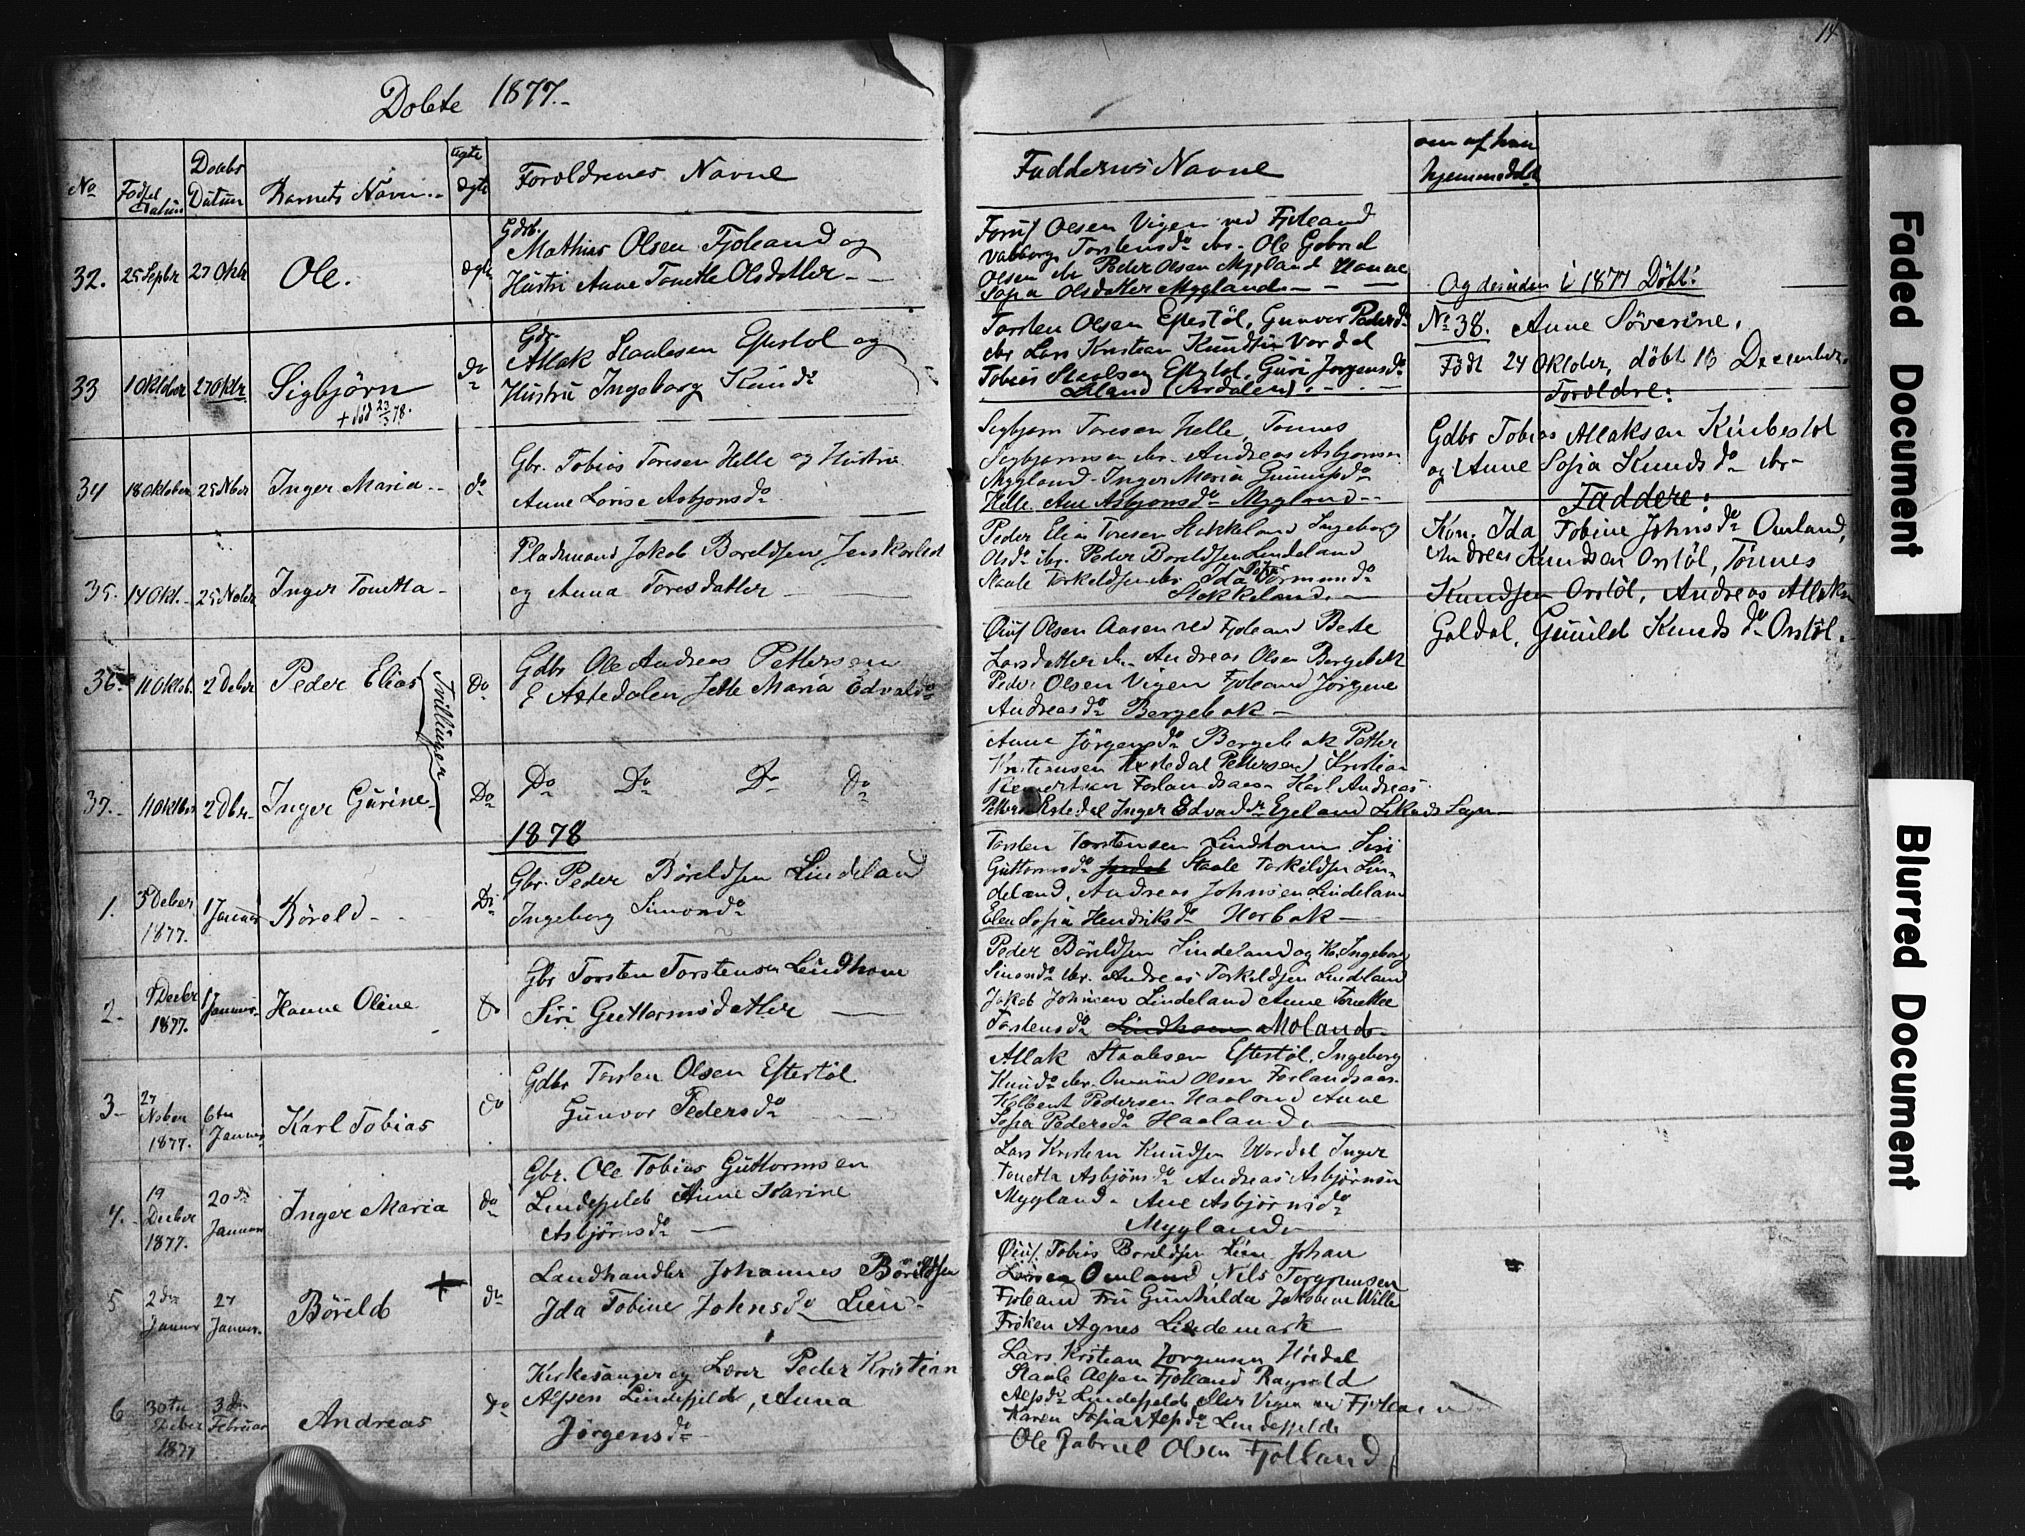 14
Døbte 1877.
No
Fødsel Datum
Daabs Datum
Barnets Navn
ægte
Forældrenes Navne
Faddernes Navne
om af hjemmedøbt
32.
25 Septbr
27 Oktbr
Ole.
ægte
Gdbr.
Mathias Olsen Fjoland og
Hustru Anne Tonette Olsdatter
Olsen Vigen ved Fjoland
Torstensdo ibr. Ole Gabriel
Olsen ibr Peder Olsen Mygland Hanne
Sofia Olsdatter Mygland
33
1 Oktober
27 Oktbr
Sigbjørn
+ død 23/3 78.
do
Gdbr.
Atlak Staalesen Eftestøl og
Hustru Ingeborg Knudsdo
Torsten Olsen Eftestøl, Gunvor Pedersdo
ibr Lars Kristian Knudsen Vordal
Tobias Staalesen Eftestøl, Guri Jørgensdo
34
18 Oktober
25 Nber
Inger Maria
do
Gbr. Tobias Toresen Helle og Hustru
Anne Lovise Asbjørnsdo
Sigbjørn Toresen Helle, Tønnes
Sigbjørnsen ibr. Andreas Asbjørnsen
Mygland Inger Maria
Helle Ane Asbjørnsdo Mygland
35.
14 Okt.
25 Nober
Inger Tonetta
Pladsmand Jakob Boreldsen
og Anna Toresdatter
Peder Elias Toresen Stakkeland Ingeborg
Olsdo ibr. Peder Boreldsen Lindeland
Staale Torkeldsen ibr. Ida Gormundsdo
Stakkeland.
36
11 Oktob.
2 Deber
Peder Elias
Tvillinger
Do
Gdbr Ole Andreas Pettersen
Aastedalen Jette Maria Edvardsdo
Olsen Aasen ved Fjoland Bete
Larsdatter ibr. Andreas Olsen Bergebak
Peder Olsen Vigen Fjoland Jørgine
Andreasdo Bergebak
37.
11 Oktbr
2 Dbr
Inger Gurine
Do
Do Do Do Do
Anne Jørgensdo Bergebak Petter
Kristensen Aastedal Pettersen Kristian
Forlandsaas Karl Andreas
Pettersen Aastedal Inger Edvardsdr Egeland
1878
1.
3 Deber 1877.
1 Januar
Børeld
Do
Gbr. Peder Børeldsen Lindeland
Ingeborg Simonsdo
Torsten Torstensen Lindhom Siri
Guttormsdo Staale Torkildsen Lin-
deland, Andreas Johnsen Lindeland
Elen Sofia Hendriksdo Horbak
2.
Decbr 1877.
1 Januar
Hanne Oline
do
Gbr Torsten Torstensen Lindhom
Siri Guttormsdatter
Peder Börildsen Lindeland og Ko. Ingeborg
Simonsdo ibr. Andreas Torkildsen Lindeland
Jakob Johnsen Lindeland Anne Tonette
Torstensdo Lindhom Moland
3.
27 Nober 1877.
6te Januar
Karl Tobias
do
Gdbr Torsten Olsen Eftestöl
Gunvor Pedersdo
Atlak Staalesen Eftestøl, Ingeborg
Knudsdo ibr. Omund Olsen Forlandsaas
Kolbent Pedersen Haaland Anne
Sofia Pedersdo Haaland.
4.
19 Decber 1877.
20de Januar
Inger Maria
do
Gbr. Ole Tobias Guttormsen
Lindefjeld Anne Karine
Asbjørnsdo
Lars Kristian Knudsen Wordal Inger
Tonetta Asbjørnsdo Andreas Asbjørnsen
Mygland Ane Asbjørnsdo
Mygland
5
2den Januar
27 Januar
Børeld +
do
Landhandler Johannes Börildsen
Ida Tobine Johnsdo Lien
Tobias Boreldsen Lien Johan
Larsen Omland, Nils Torgrimsen
Fjoland Fru Gunhilda Jakobine Wille
Frøken Agnes Lindemark
6
30te Deber 1877
3de Februar
Andreas
do
Kirkesanger og Lærer Peder Kristian
Alfsen Lindefjeld, Anna
Jørgensdo
Lars Kristian Jørgensen
Staale Alfsen Fjolland Ragnild
Alfsdo Lindefjeld
Karen Sofia Alfsdo Lindefjeld
Ole Gabriel Olsen Fjolland
Og desuden i 1877 Döbt:
No 38. Anne Söverine,
Födt 24 Oktober, döbt 16 December
Foreldre:
Gdbr Tobias Atlaksen Knibestøl
og Anne Sofia Knudsdo ibr
Faddere:
Kon. Ida Tobine Johnsdo Omland,
Andreas Knudsen Orstöl, Tönnes
Knudsen Orstöl, Andreas Atlaksen
Galdal, Gunild Knudsdo Orstöl.
Faded Document
Blurred Document